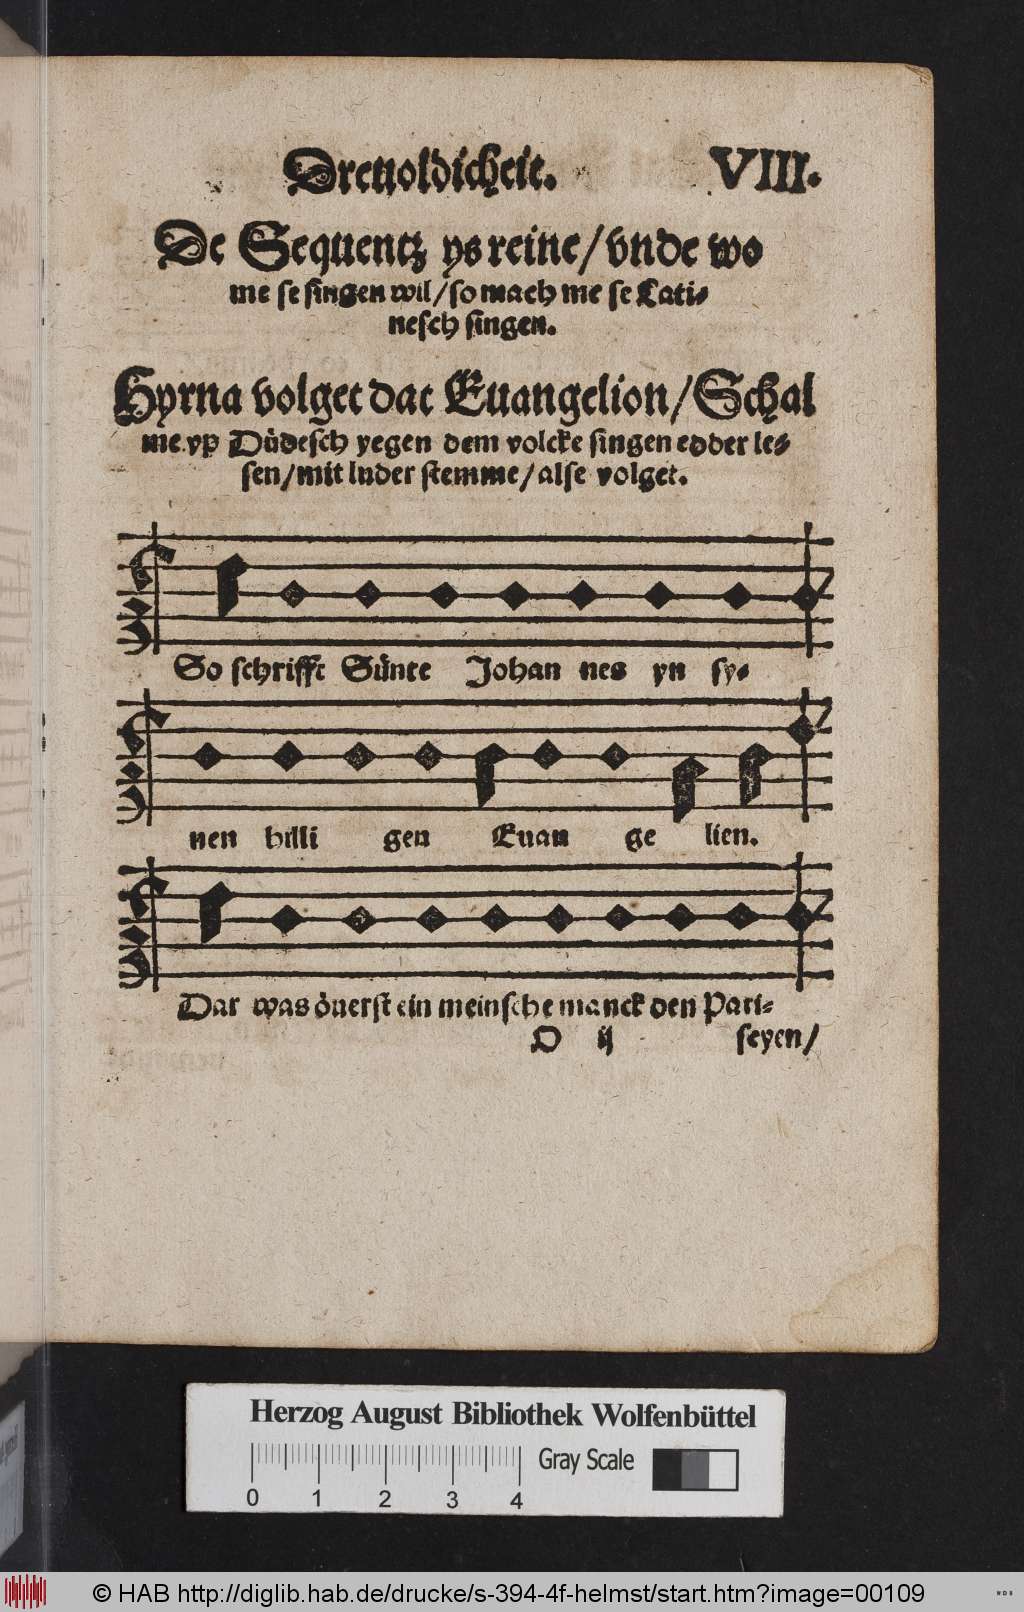 Dreuoldicheit. VIII.
De Sequentz ys reine/ vnde wo
me se singen wil/ so mach me se Lati-
nesch singen.
Hyrna volget dat Euangelion/ Schal
me vp Düdesch yegen dem volcke singen edder le-
sen/ mit luder stemme/ alse volget.
So schrifft Sünte Johan nes yn sy-
nen hilli gen Euan ge lien.
Dar was öuerst ein meinsche manck den Pari-
D ij seyen/
Herzog August Bibliothek Wolfenbüttel
Gray Scale
0 1 2 3 4
© HAB http://diglib.hab.de/drucke/s-394-4f-helmst/start.htm?image=00109